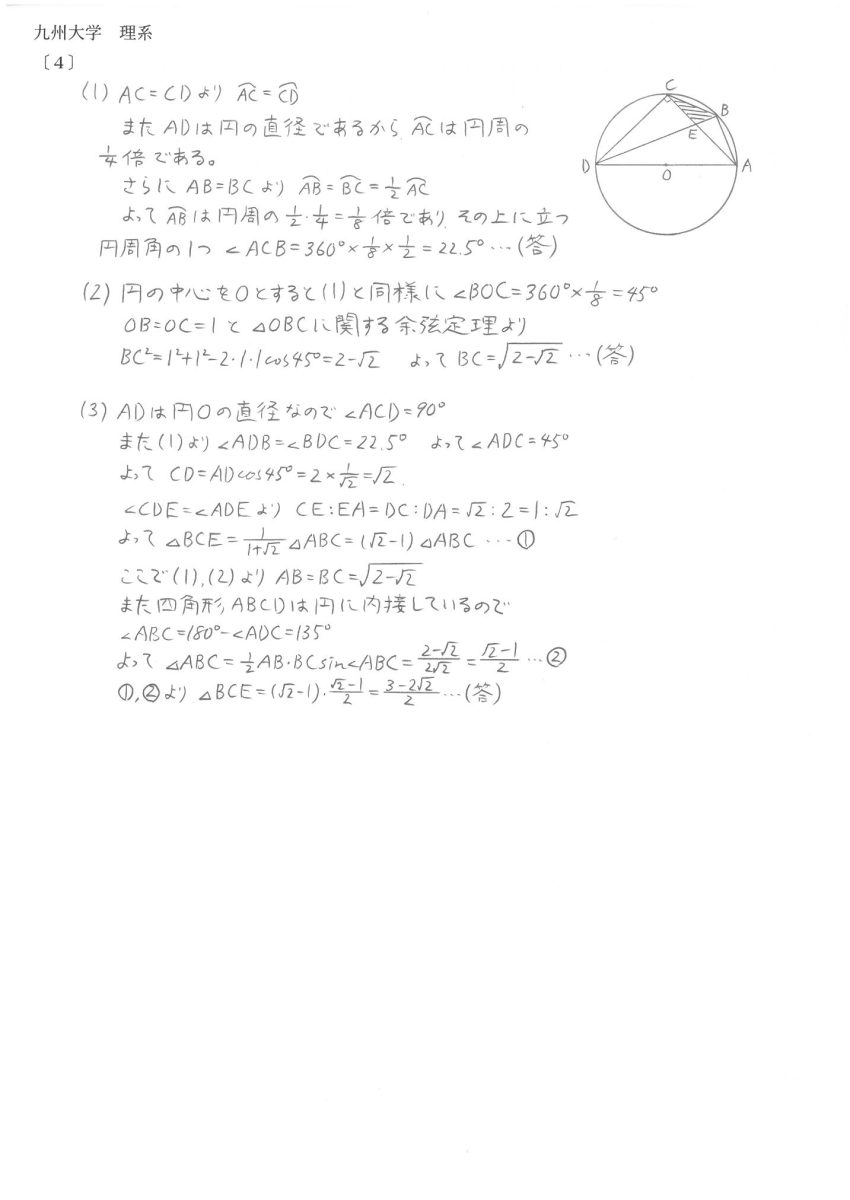 九州大学 理系
〔4〕
(1) AC=CDより ⌒AC=⌒CD
またADは円の直径であるから、⌒ACは円周の
1/4倍である。
さらに AB=BCより ⌒AB=⌒BC=1/2⌒AC
よって ⌒ABは円周の 1/2・1/4=1/8倍であり、その上に立つ
円周角の1つ ∠ACB=360°×1/8×1/2=22.5° …(答)
C
B
E
D
O
A
(2) 円の中心をOとすると(1)と同様に ∠BOC=360°×1/8=45°
OB=OC=1と △OBCに関する余弦定理より
BC²=1²+1²-2・1・1cos45°=2-√2 よって BC=√(2-√2) …(答)
(3) ADは円Oの直径なので ∠ACD=90°
また(1)より ∠ADB=∠BDC=22.5° よって ∠ADC=45°
よって CD=ADcos45°=2×1/√2=√2.
∠CDE=∠ADEより CE:EA=DC:DA=√2:2=1:√2
よって △BCE=1/(1+√2)△ABC=(√2-1)△ABC …①
ここで(1),(2)より AB=BC=√(2-√2)
また四角形ABCDは円に内接しているので
∠ABC=180°-∠ADC=135°
よって △ABC=1/2AB・BCsin∠ABC=(2-√2)/(2√2)=(√2-1)/2 …②
①,②より △BCE=(√2-1)・(√2-1)/2=(3-2√2)/2 …(答)